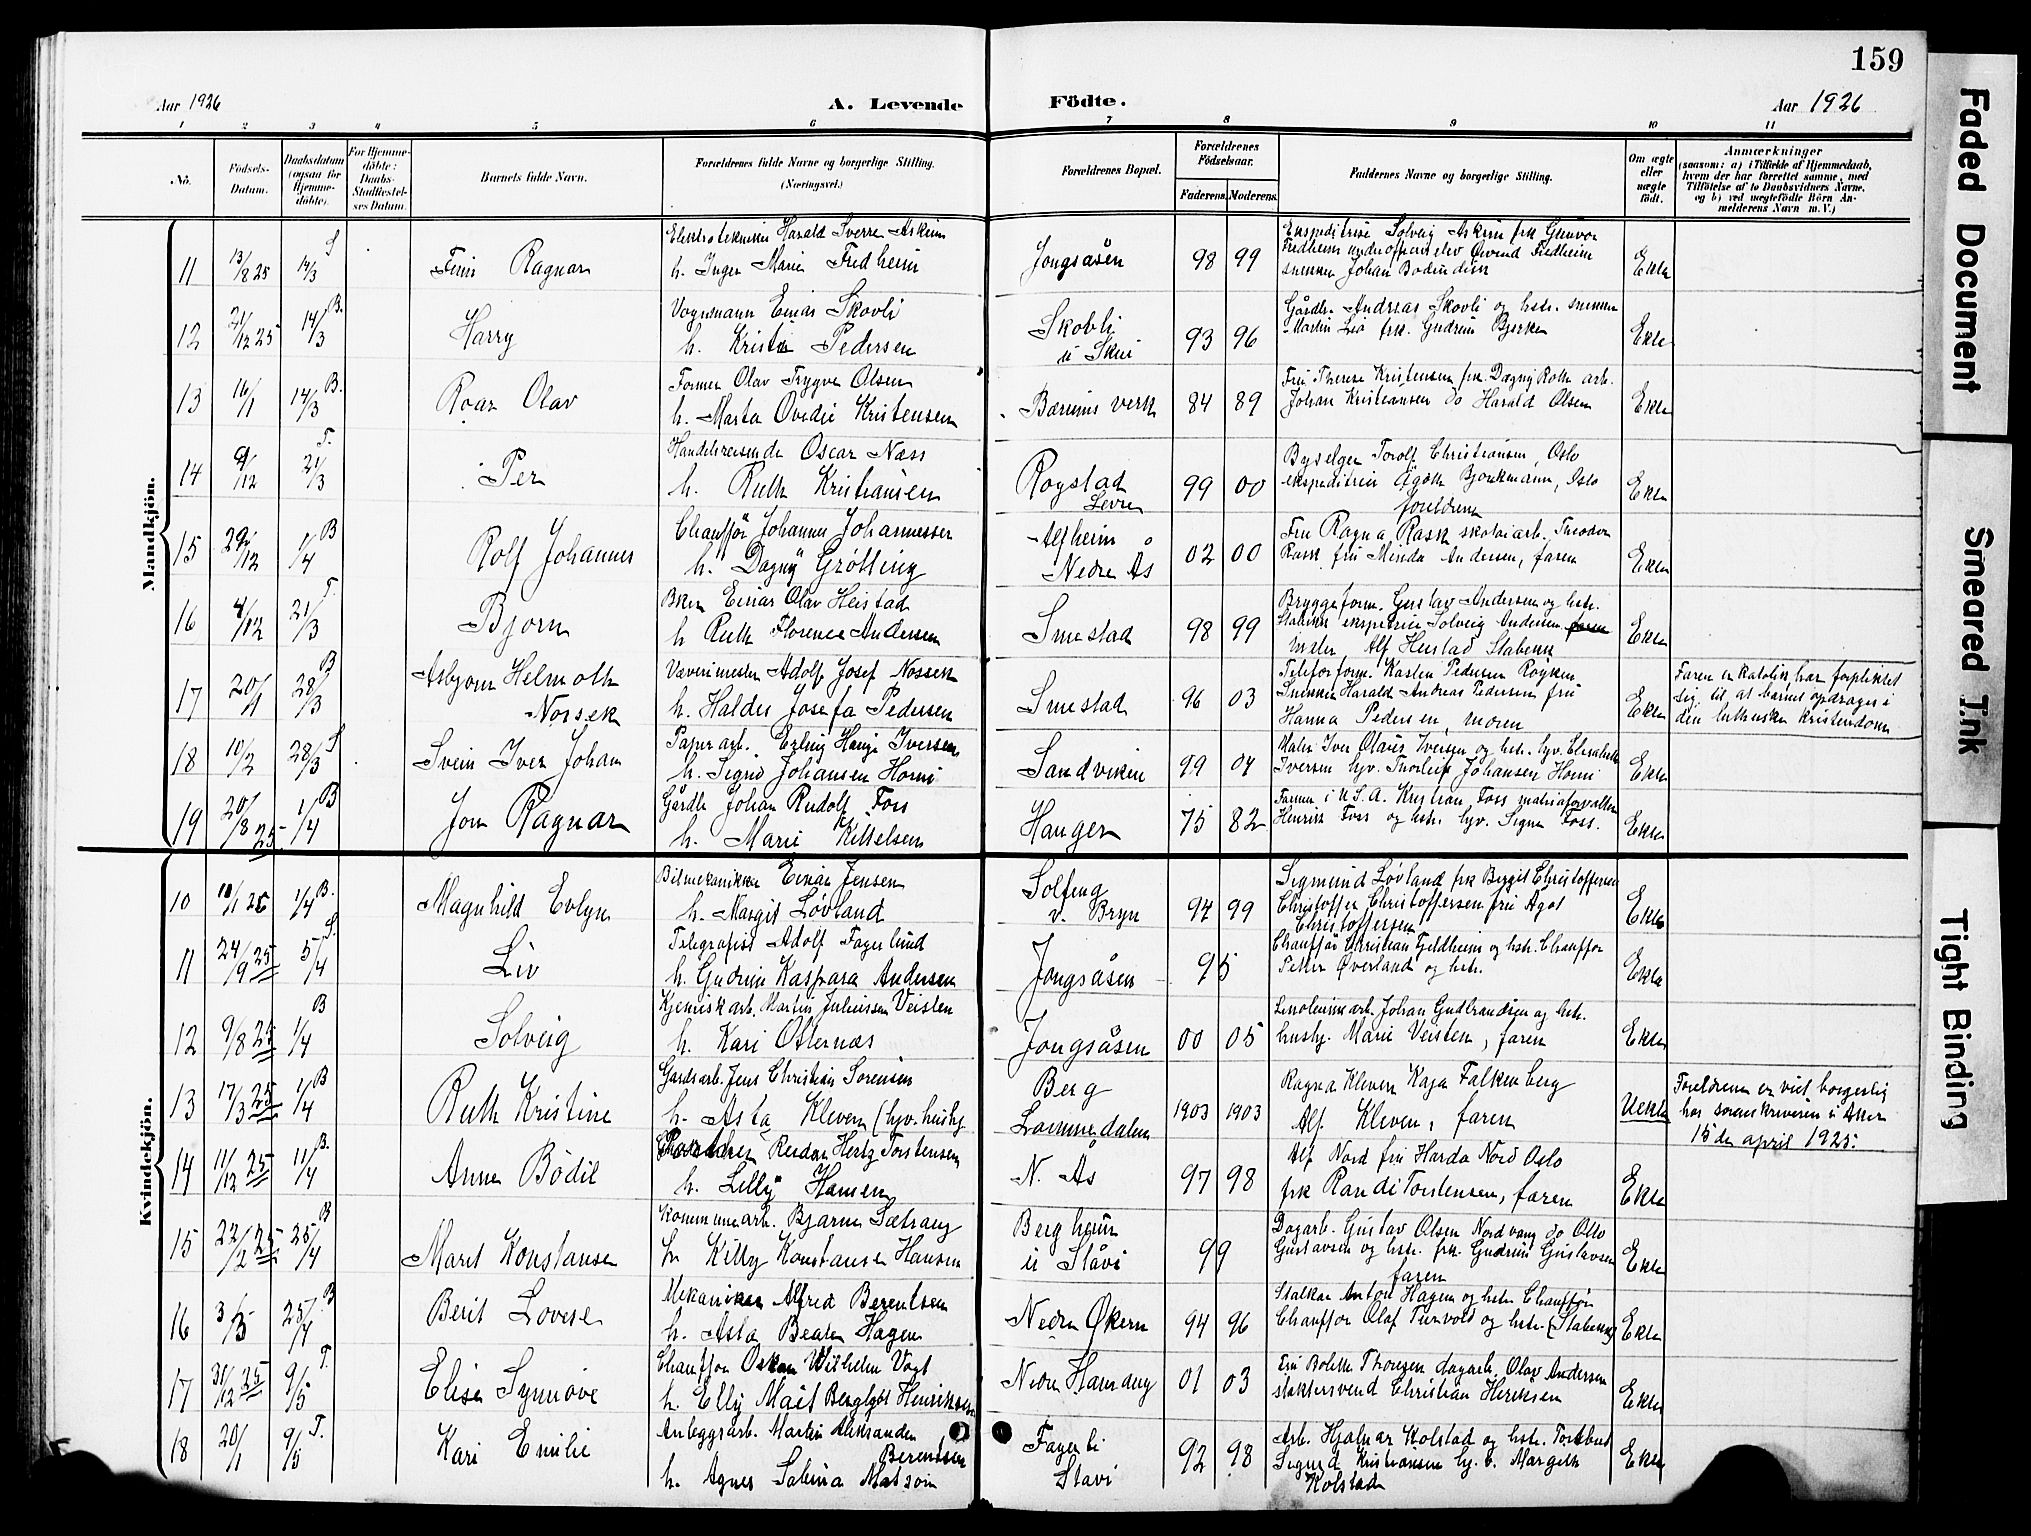 159
Aar 1926
A. Levende
Födte.
Aar 1926
1 2 3 4 5 6 7 8 9 10 11
No.
Födsels-
Datum.
Daabsdatum
(ogsaa for
Hjemme-
döbte).
For Hjemme-
döbte:
Daabs-
Stadfæstel-
ses Datum.
Barnets fulde Navn.
Forældrenes fulde Navne og borgerlige Stilling.
(Næringsvei.)
Forældrenes Bopæl.
Forældrenes
Födselsaar.
Faderens. Moderens.
Faddernes Navne og borgerlige Stilling.
Om ægte
eller
uægte
födt.
Anmærkninger
(saasom: a) i Tilfælde af Hjemmedaab,
hvem der har forrettet samme, med
Tilföielse af to Daabsvidners Navne,
og b) ved uægtefödte Börn An-
melderens Navn m. V.)
Mandkjön.
11 13/8 25 14/3 S
Finn Ragnar
Elektrotekniker Harald Sverre Askim
h. Inger Marie Fredheim
Jongsåsen
98 99
Ekspeditrise Solveig Askim frk Gunvor
Fredheim underoffiserselev Øivind Fredheim
snekker Johan Bodindsen
Ekte
12 21/12 25 14/3 B.
Harry
Vognmann Einar Skovli
h. Kristi Pedersen
Skovli
i Skui
93 96
Gårdbr. Andreas Skovli og hstr. snekker
Martin Lie frk. Gudrun Bjerke
Ekte
13 16/1 14/3 B.
Roar Olav
Former Olav Trygve Olsen
h. Marta Ovedie Kristensen
Bærums verk
84 89
Fru Therese Kristensen frk. Dagny Roth arb.
Johan Kristiansen do Harald Olsen
Ekte
14 9/12 21/3 T.
Per
Handelsreisende Oscar Næss
h. Ruth Kristiansen
Roystad
Levre
99 00
Byselger Torolf Christiansen, Oslo
ekspeditrise Ågoth Bjorkmann, Oslo
foreldrene
Ekte
15 29/12 1/4 B
Rolf Johannes
Chauffør Johannes Johannessen
h. Dagny Grøtting
Alfheim
Nedre Ås
02 00
Fru Ragna Rask skotoiarb. Theodor
Rask fru Minda Andersen, faren
Ekte
16 4/12 21/3 T.
Bjorn
Einar Olav Heistad
h Ruth Florence Andersen
Smestad
98 99
Bryggeform. Gustav Andersen og hstr.
Stabekk Solveig Andersen faren
maler Alf Heistad Stabekk
Ekte
17 20/1 28/3 B
Asbjorn Helmoth
Nossek
Vævermester Adolf Josef Nossek
h. Haldis Josefa Pedersen
Smestad
96 03
Telefonform. Karsten Pedersen Røyken
Snekker Harald Andreas Pedersen fru
Hanna Pedersen, moren
Ekte
Faren er katolik har forpliktet
sig til at barnet opdrages i
den lutherske kristendom
18 10/2 28/3 S
Svein Iver Johan
Papirarb. Erling Hauge Iversen
h. Sigrid Johansen Horni
Sandviken
99 04
Maler Iver Olaus Iversen og hstr. hjv. Elisabeth
Iversen hjv. Thorleif Johansen Horni
Ekte
19 20/8 25 1/4 B
Jon Ragnar
Gårdbr Johan Rudolf Foss
h. Marie Kittelsen
Hauger
75 82
Farmer i U.S.A. Kristian Foss materialforvalter
Henrik Foss og hstr. hjv. Signe Foss.
Ekte
Kvindekjön.
10 18/1 26 1/4 B.
Magnhild Evlyn
Bilmekaniker Einar Jensen
h. Margit Løvland
Solfeng
v. Bryn
94 99
Sigmund Løvland frk Bergit Christoffersen
Christoffer Christoffersen fru Agot
Christoffersen
Ekte
11 24/9 25 5/4 S.
Liv
Telegrafist Adolf Fagerlund
h. Gudrun Kaspara Andersen
Jongsåsen
95
Chauffør Christian Fjeldheim og hstr. Chauffør
Petter Øverland og hstr.
Ekte
12 9/8 25 1/4 B
Solveig
Kjemisk arb. Martin Juliussen Veisten
h. Kari Osternæs
Jongsåsen
00 05
Linoleumarb. Johan Gudbrandsen og hstr.
hushj. Marie Veisten, faren
Ekte
13 17/3 25 1/4 B
Ruth Kristine
Gardsarb. Jens Christian Sorensen
h. Asta Kleven (hjv. hushj.
Berg
Lommedalen
1903 1903
Ragna Kleven Kaja Falkenberg
Alf Kleven, faren
Uekte
Foreldrene er viet borgerlig
hos sorenskriveren i Aker
15de april 1925.
14 11/12 25 11/4 B.
Anne Bödil
Reidar Hertz Torstensen
h. Lilly Hansen
N. Ås
97 98
Alf Nord fru Harda Nord Oslo
frk Randi Torstensen, faren
Ekte
15 22/2 25 25/4 B
Marit Konstanse
Kommunearb. Bjarne Sætrang
h. Killy Konstanse Hansen
Bergheim
i Stavi
99
Dagarb. Gustav Olsen Nordvang do Otto
Gustavsen og hstr. frk. Gudrun Gustavsen
faren
Ekte
16 3/3 25/4 B
Berit Lovise
Mekaniker Alfred Berentsen
h. Asta Hagen
Nedre Økern
94 96
Anton Hagen og hstr Chauffør
Chauffør Olaf Turvold og hstr. (Stabekk)
Ekte
17 31/12 25 9/5 T.
Elise Synnøve
Chauffør Oskar Wilhelm Vogt
h. Elly Mait Bergljot Henriksen
Nedre Hamang
01 03
Fru Bolette Thonsen dagarb. Olav Andersen
slaktersvend Christian Henriksen
Ekte
18 20/1 9/5 T.
Kari Emilie
Anleggsarb. Martin Aleksander
Berentsen
h. Agnes Sabina Matson
Fagerli
Stavi
92 98
Arb. Hjalmar Kolstad og hstr.
Sigurd Kristiansen Margith
Kolstad
Ekte
Faded Document
Smeared Ink
Tight Binding